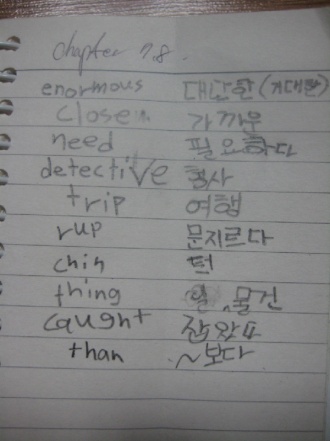 chapter 7.8.
enormous 대단한 (거대한)
close 가까운
need 필요하다
detective 형사
trip 여행
rup 문지르다
chin 턱
thing 일, 물건
caught 잡았다
than ~보다